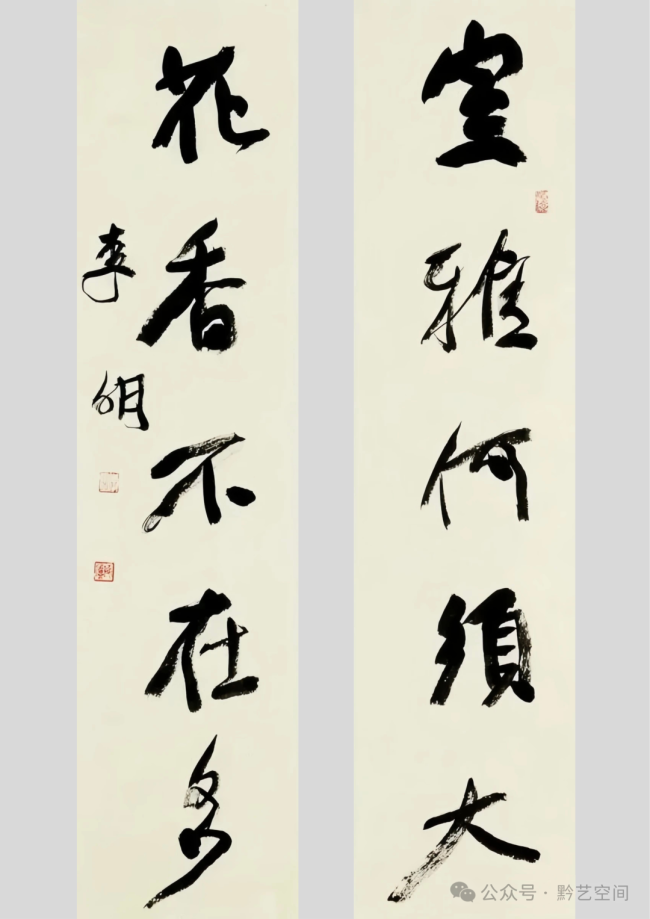 室雅何须大
花香不在多
李明
公众号·黔艺空间